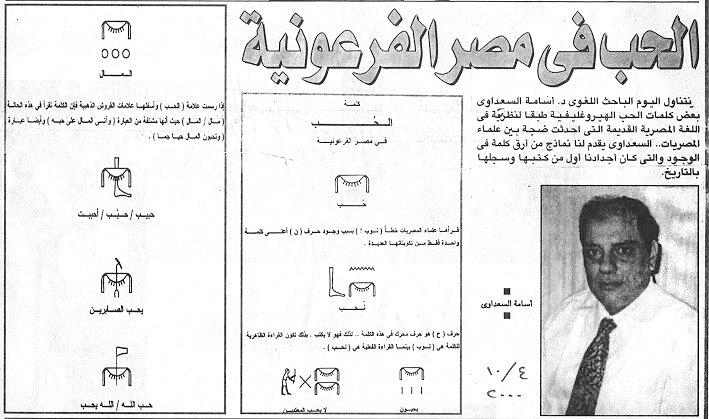 الحب فى مصر الفرعونية
يتناول اليوم الباحث اللغوى د. أسامة السعداوى
بعض كلمات الحب الهيروغليفية طبقا لنظرية فى
اللغة المصرية القديمة التى احدثت ضجة بين علماء
المصريات.. السعداوى يقدم لنا نماذج من أرق كلمة فى
الوجود والتى كان أجدادنا أول من كتبها وسجلها
بالتاريخ.
أسامة السعداوى
١٠/٤
٢٠٠٠
كلمة
الحب
في مصر الفرعونية
حب
قرأها علماء المصريات خطأ ( نوب ! ) بسبب وجود حرف ( ن ) أعلى كلمة
واحدة فقط من تكويناتها العديدة .
نحب
حرف ( ح ) هو حرف محرك في هذه الكلمة .. لذلك فهو لا يكتب . بذلك تكون القراءة الظاهرية
للكلمة هي ( نوب ) بينما القراءة الفعلية هي ( نحب ) .
يحبون
لا يحب المعتدين
المال
إذا رسمت علامة ( الحب ) وأسفلها علامات القروش الذهبية فإن الكلمة تقرأ في هذه الحالة
( مال / المال ) حيث أنها مشتقة من العبارة ( وأتى المال على حبه ) وأيضا عبارة
( وتحبون المال حبا جما ) .
حبيب / حبب / أحببت
يحب الصابرين
حب الله / الله يحب